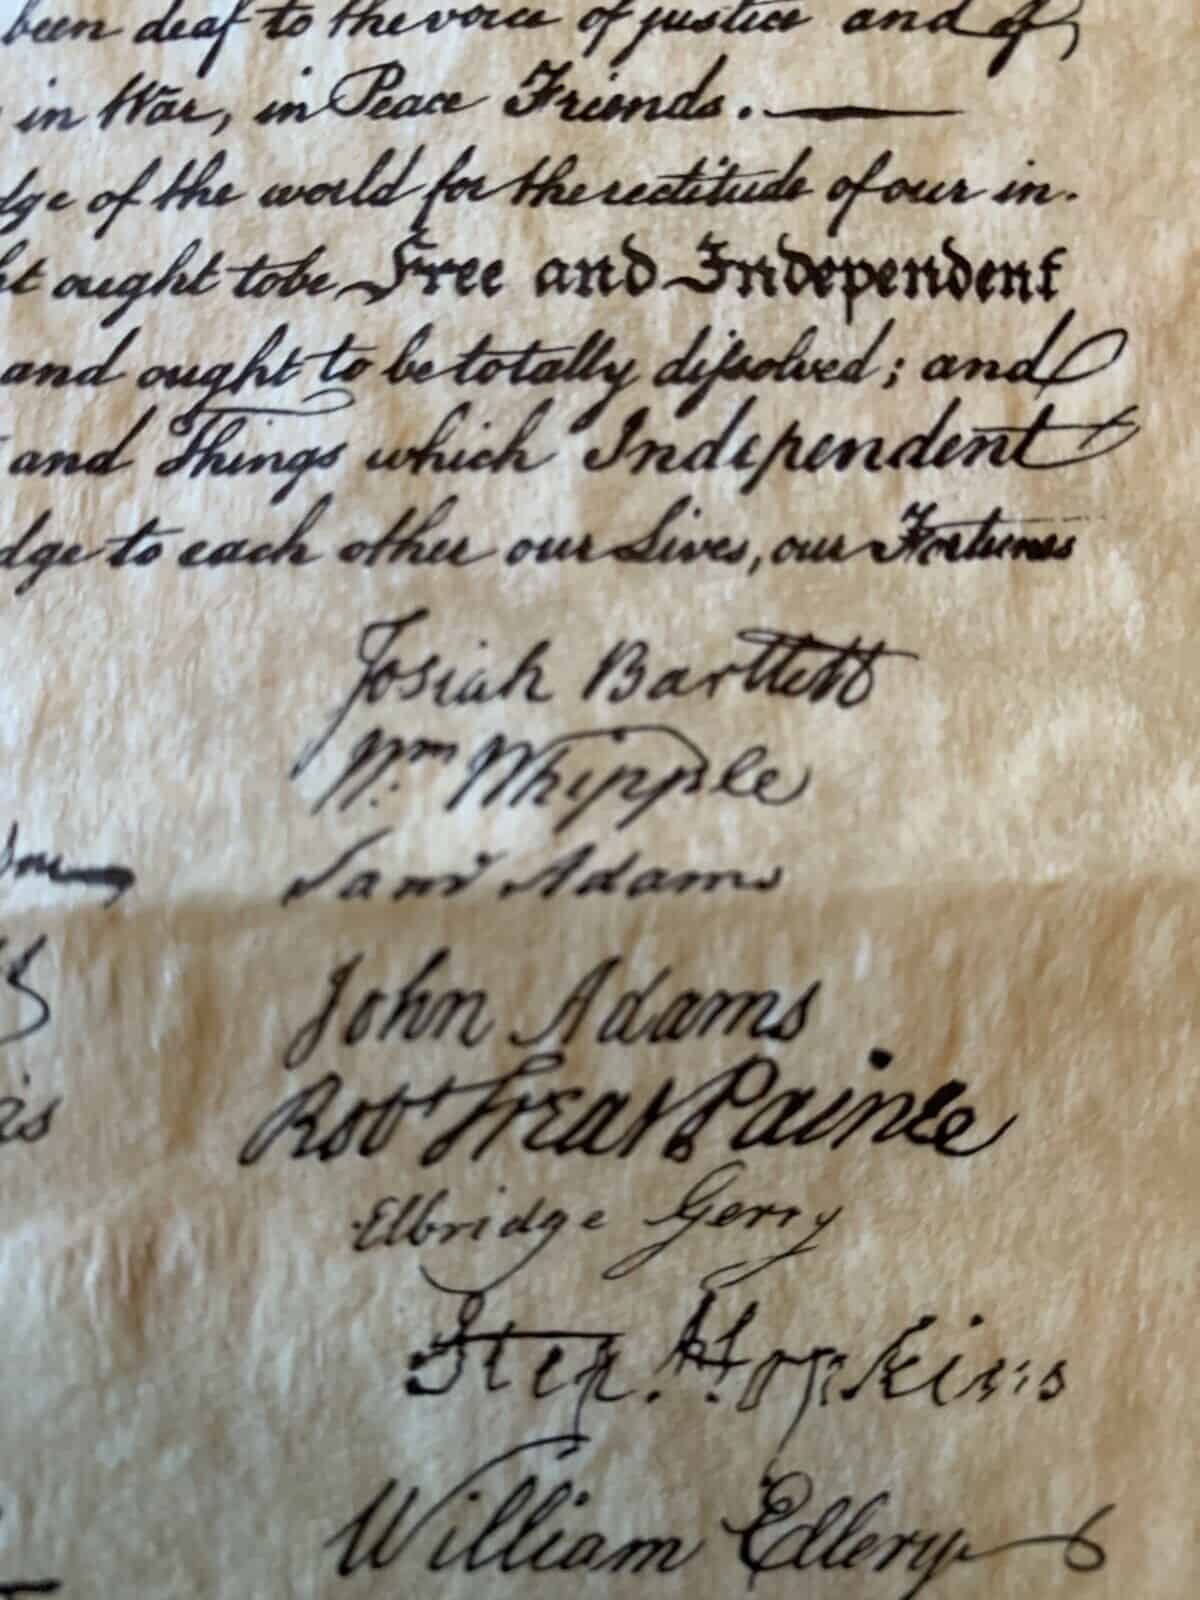 been deaf to the voice of justice and of
in War, in Peace Friends. —
dge of the world for the rectitude of our in-
ht ought to be Free and Independent
and ought to be totally dissolved; and
and Things which Independent
dge to each other our Lives, our Fortunes
Josiah Bartlett
Wm. Whipple
Saml Adams
John Adams
Robt Treat Paine
Elbridge Gerry
Step. Hopkins
William Ellery